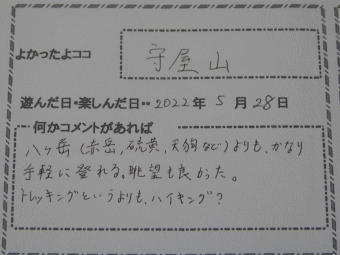 よかったよココ
守屋山
遊んだ日・楽しんだ日・・2022年5月28日
何かコメントがあれば
八ヶ岳（赤岳,硫黄,天狗など）よりも、かなり
手軽に登れる。眺望も良かった。
トレッキングというよりも、ハイキング？